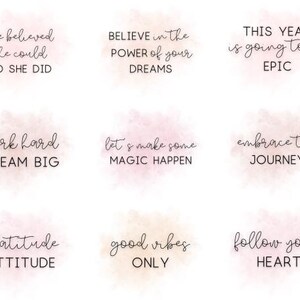 believed
could
SHE DID
BELIEVE in the
POWER of your
DREAMS
THIS YEAR
is going to
EPIC
hard
BIG
let's make some
MAGIC HAPPEN
embrace
JOURNEY
good vibes
ONLY
follow
HEART